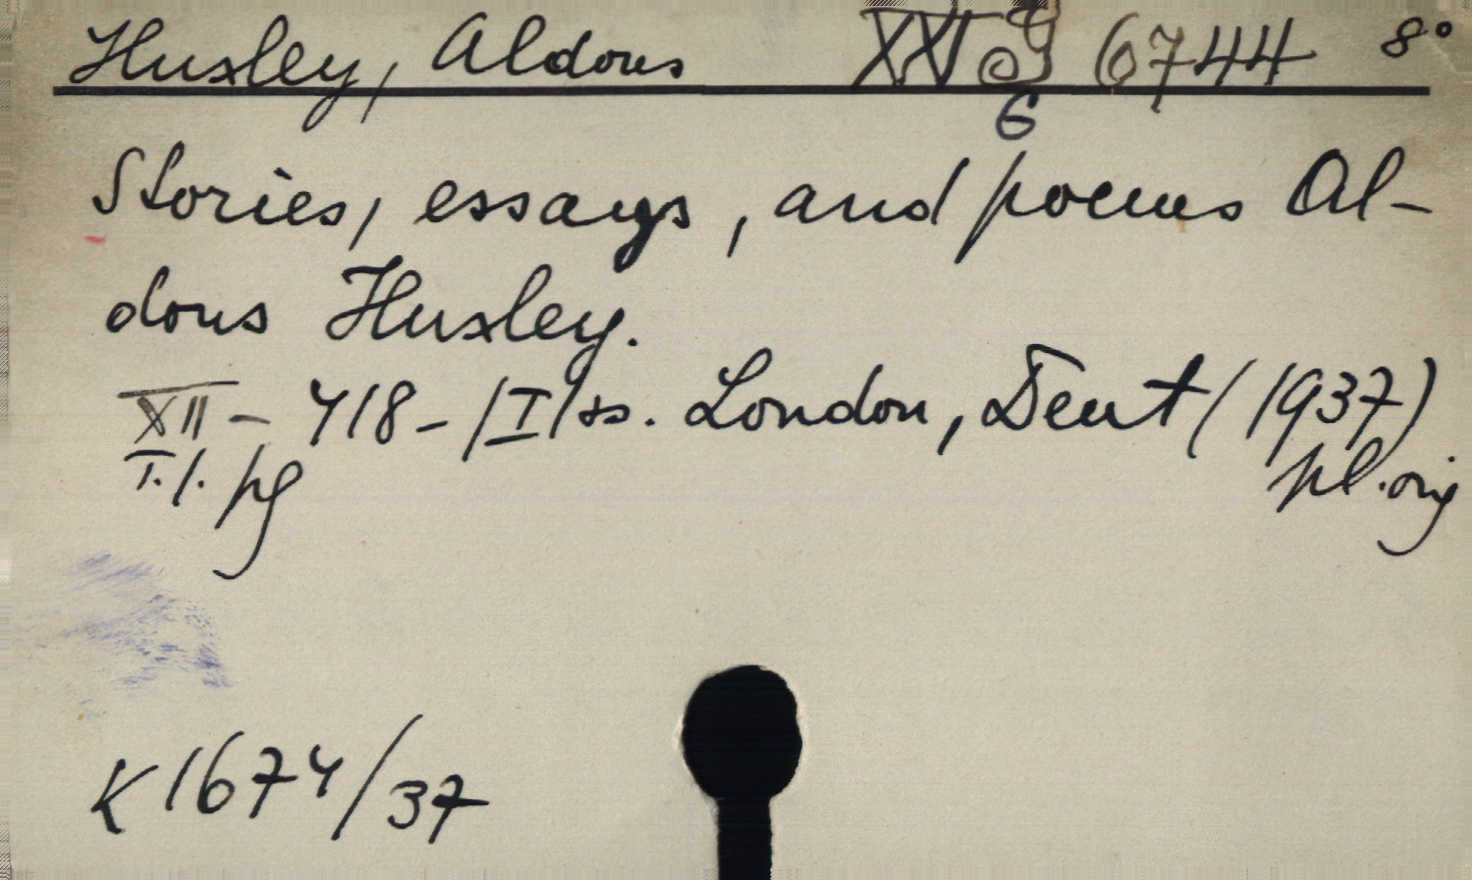 Huxley, Aldous XXI G 6744 8°
6
Stories, essays, and poems Al-
dous Huxley.
XII - 418 - |I| ss. London, Dent (1937)
T. 1. pg pl. orig
K 1674/37